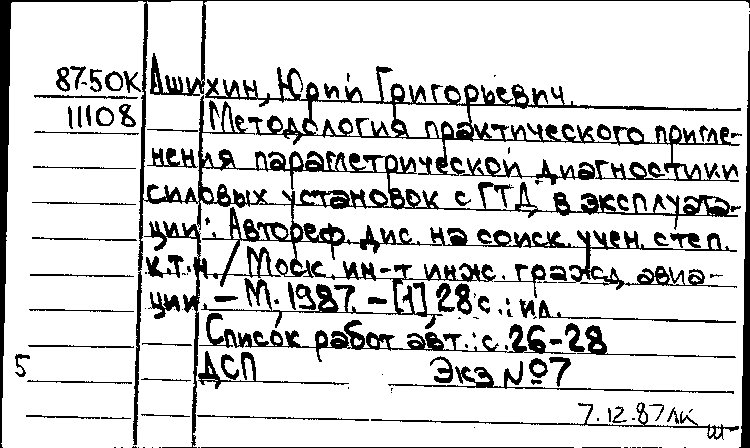 87-50К Ашихин, Юрий Григорьевич.
11108 Методология практического приме-
нения параметрической диагностики
силовых установок с ГТД в эксплуата-
ции: Автореф. дис. на соиск. учен. степ.
к.т.н. / Моск. ин-т инж. гражд. авиа-
ции. – М. 1987. – [1], 28 с.: ил.
Список работ авт.: с. 26-28
5 ДСП Экз №7
7.12.87 ЛК
ш